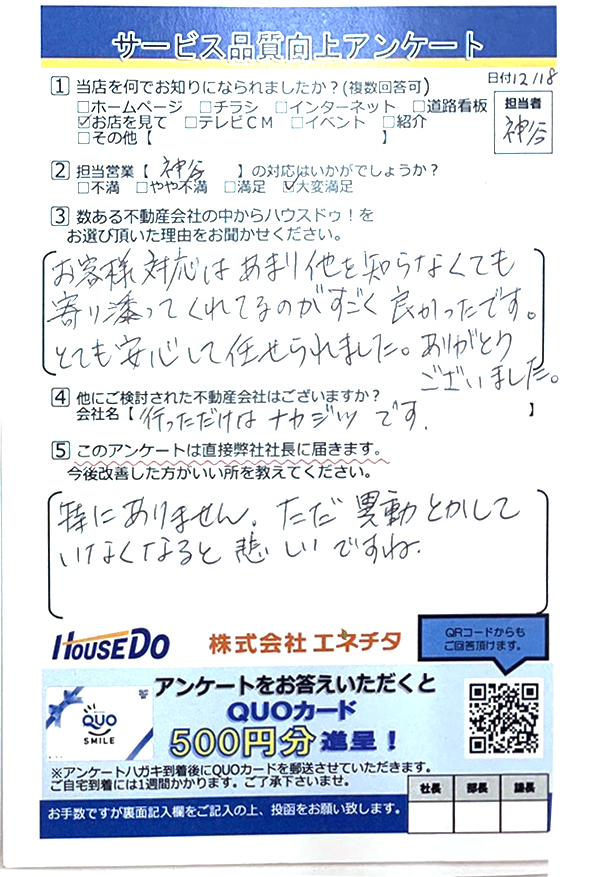 サービス品質向上アンケート
日付12/18
1 当店を何でお知りになられましたか?(複数回答可)
□ホームページ □チラシ □インターネット □道路看板
☑お店を見て □テレビCM □イベント □紹介
□その他【 】
担当者
神谷
2 担当営業【 神谷 】の対応はいかがでしょうか?
□不満 □やや不満 □満足 ☑大変満足
3 数ある不動産会社の中からハウスドゥ!を
お選び頂いた理由をお聞かせください。
お客様対応はあまり他を知らなくても
寄り添ってくれてるのがすごく良かったです。
とても安心して任せられました。ありがとう
ございました。
4 他にご検討された不動産会社はございますか?
会社名【 行っただけはナカジツです. 】
5 このアンケートは直接弊社社長に届きます。
今後改善した方がいい所を教えてください。
特にありません。ただ異動とかして
いなくなると悲しいですね.
HOUSEDO 株式会社 エネチタ
QRコードからも
ご回答頂けます。
アンケートをお答えいただくと
QUOカード
500円分進呈!
QUO
SMILE
※アンケートハガキ到着後にQUOカードを郵送させていただきます。
ご自宅到着には1週間かかります。ご了承下さいませ。
社長 部長 課長
お手数ですが裏面記入欄をご記入の上、投函をお願い致します。